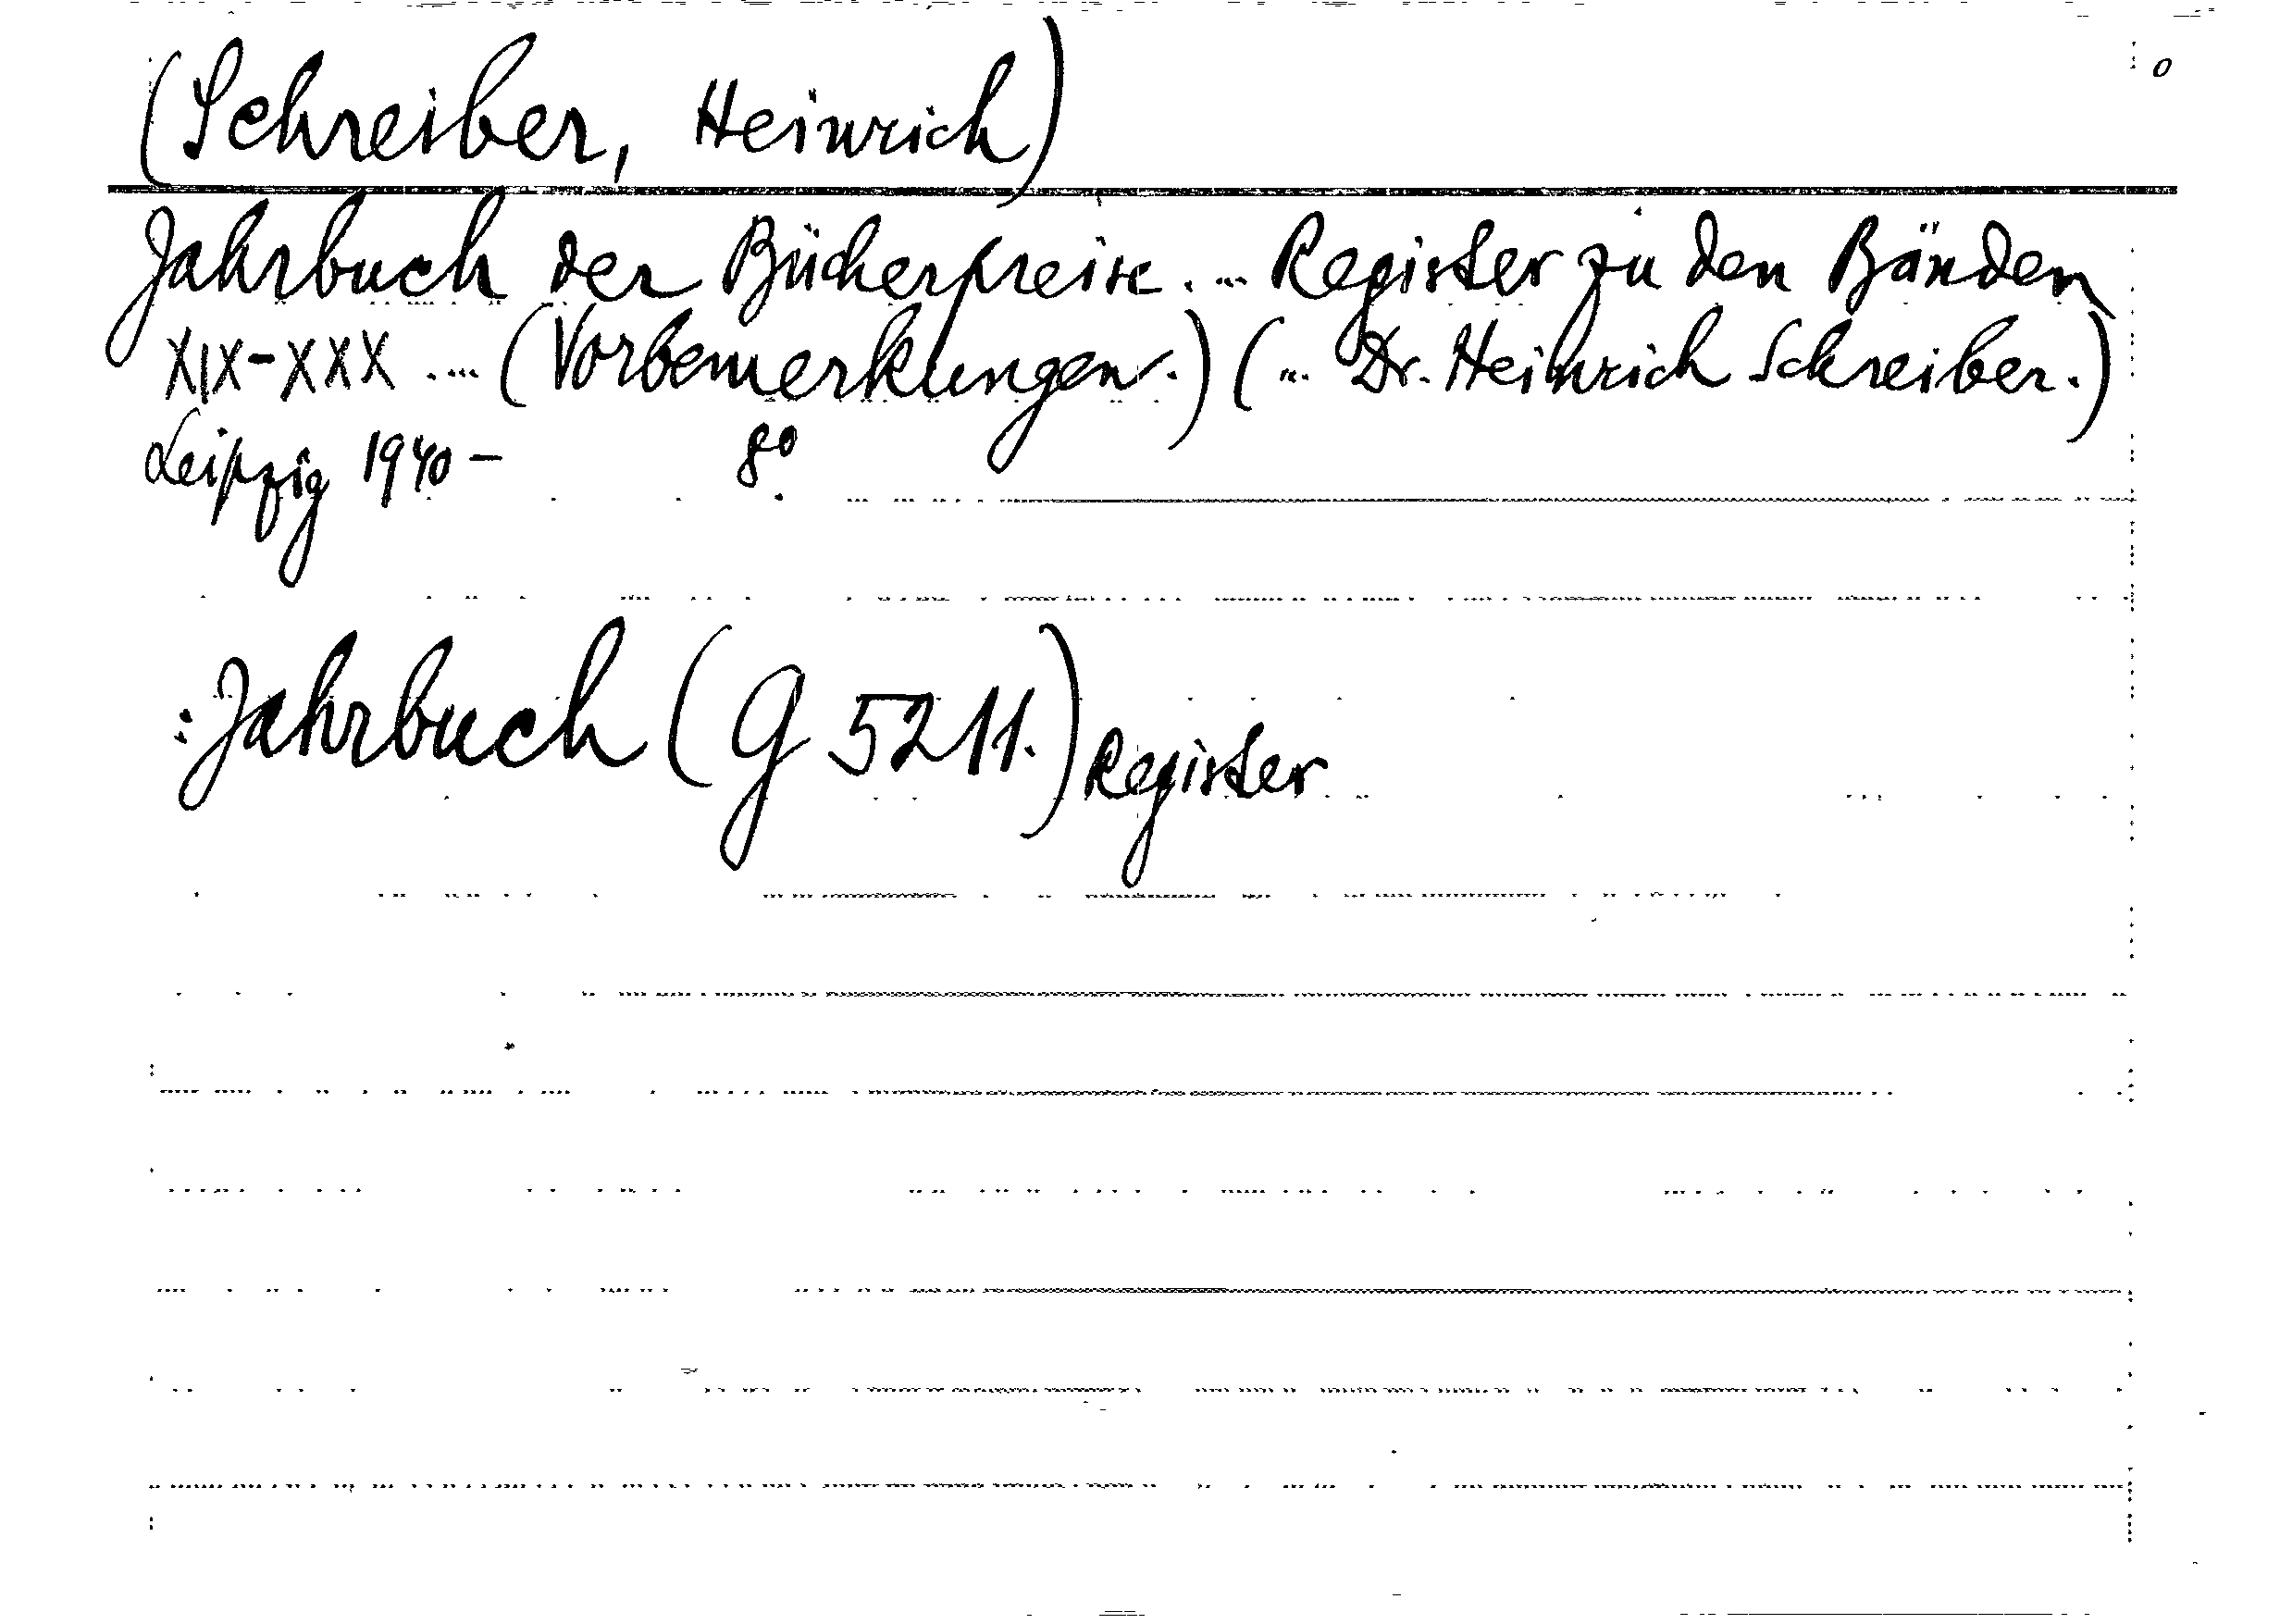 o
(Schreiber, Heinrich)
Jahrbuch der Bücherpreise. ... Register zu den Bänden
XIX-XXX .... (Vorbemerkungen.) (... Dr. Heinrich Schreiber.)
Leipzig 1940 – 8°
: Jahrbuch (G 5211.) Register